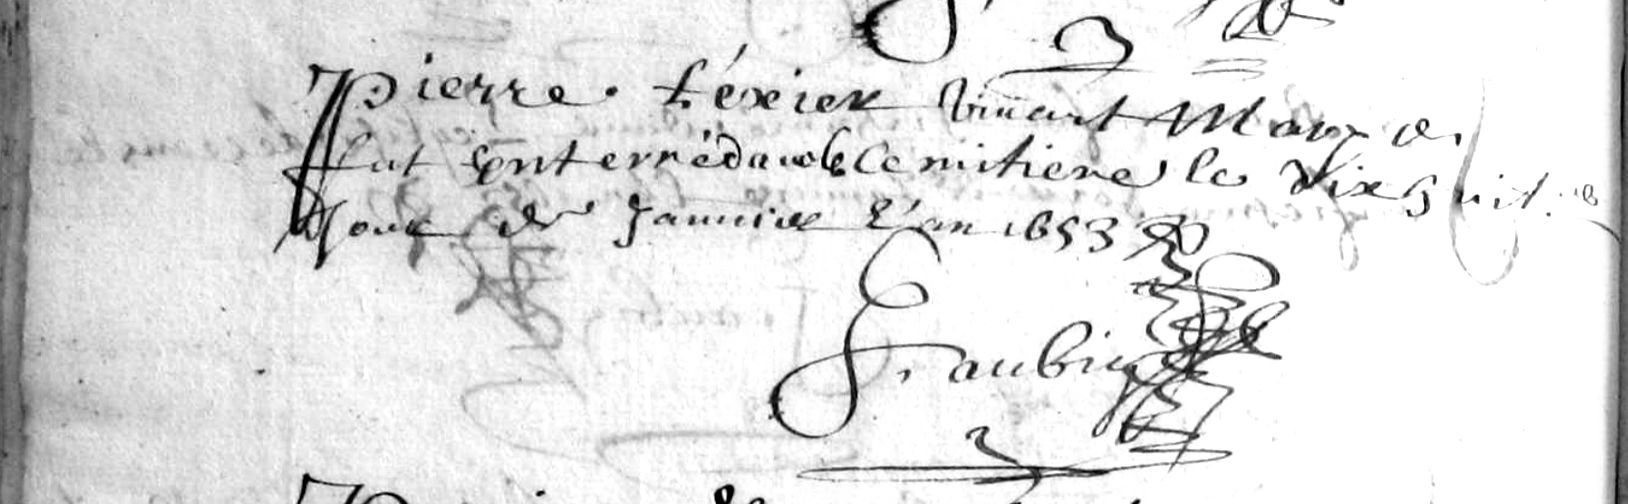 Pierre Téxier vivant Mary de
fut enterré dans le Cemitiere le dix huit
Jour de Janvier L'an 1653
J. aubin